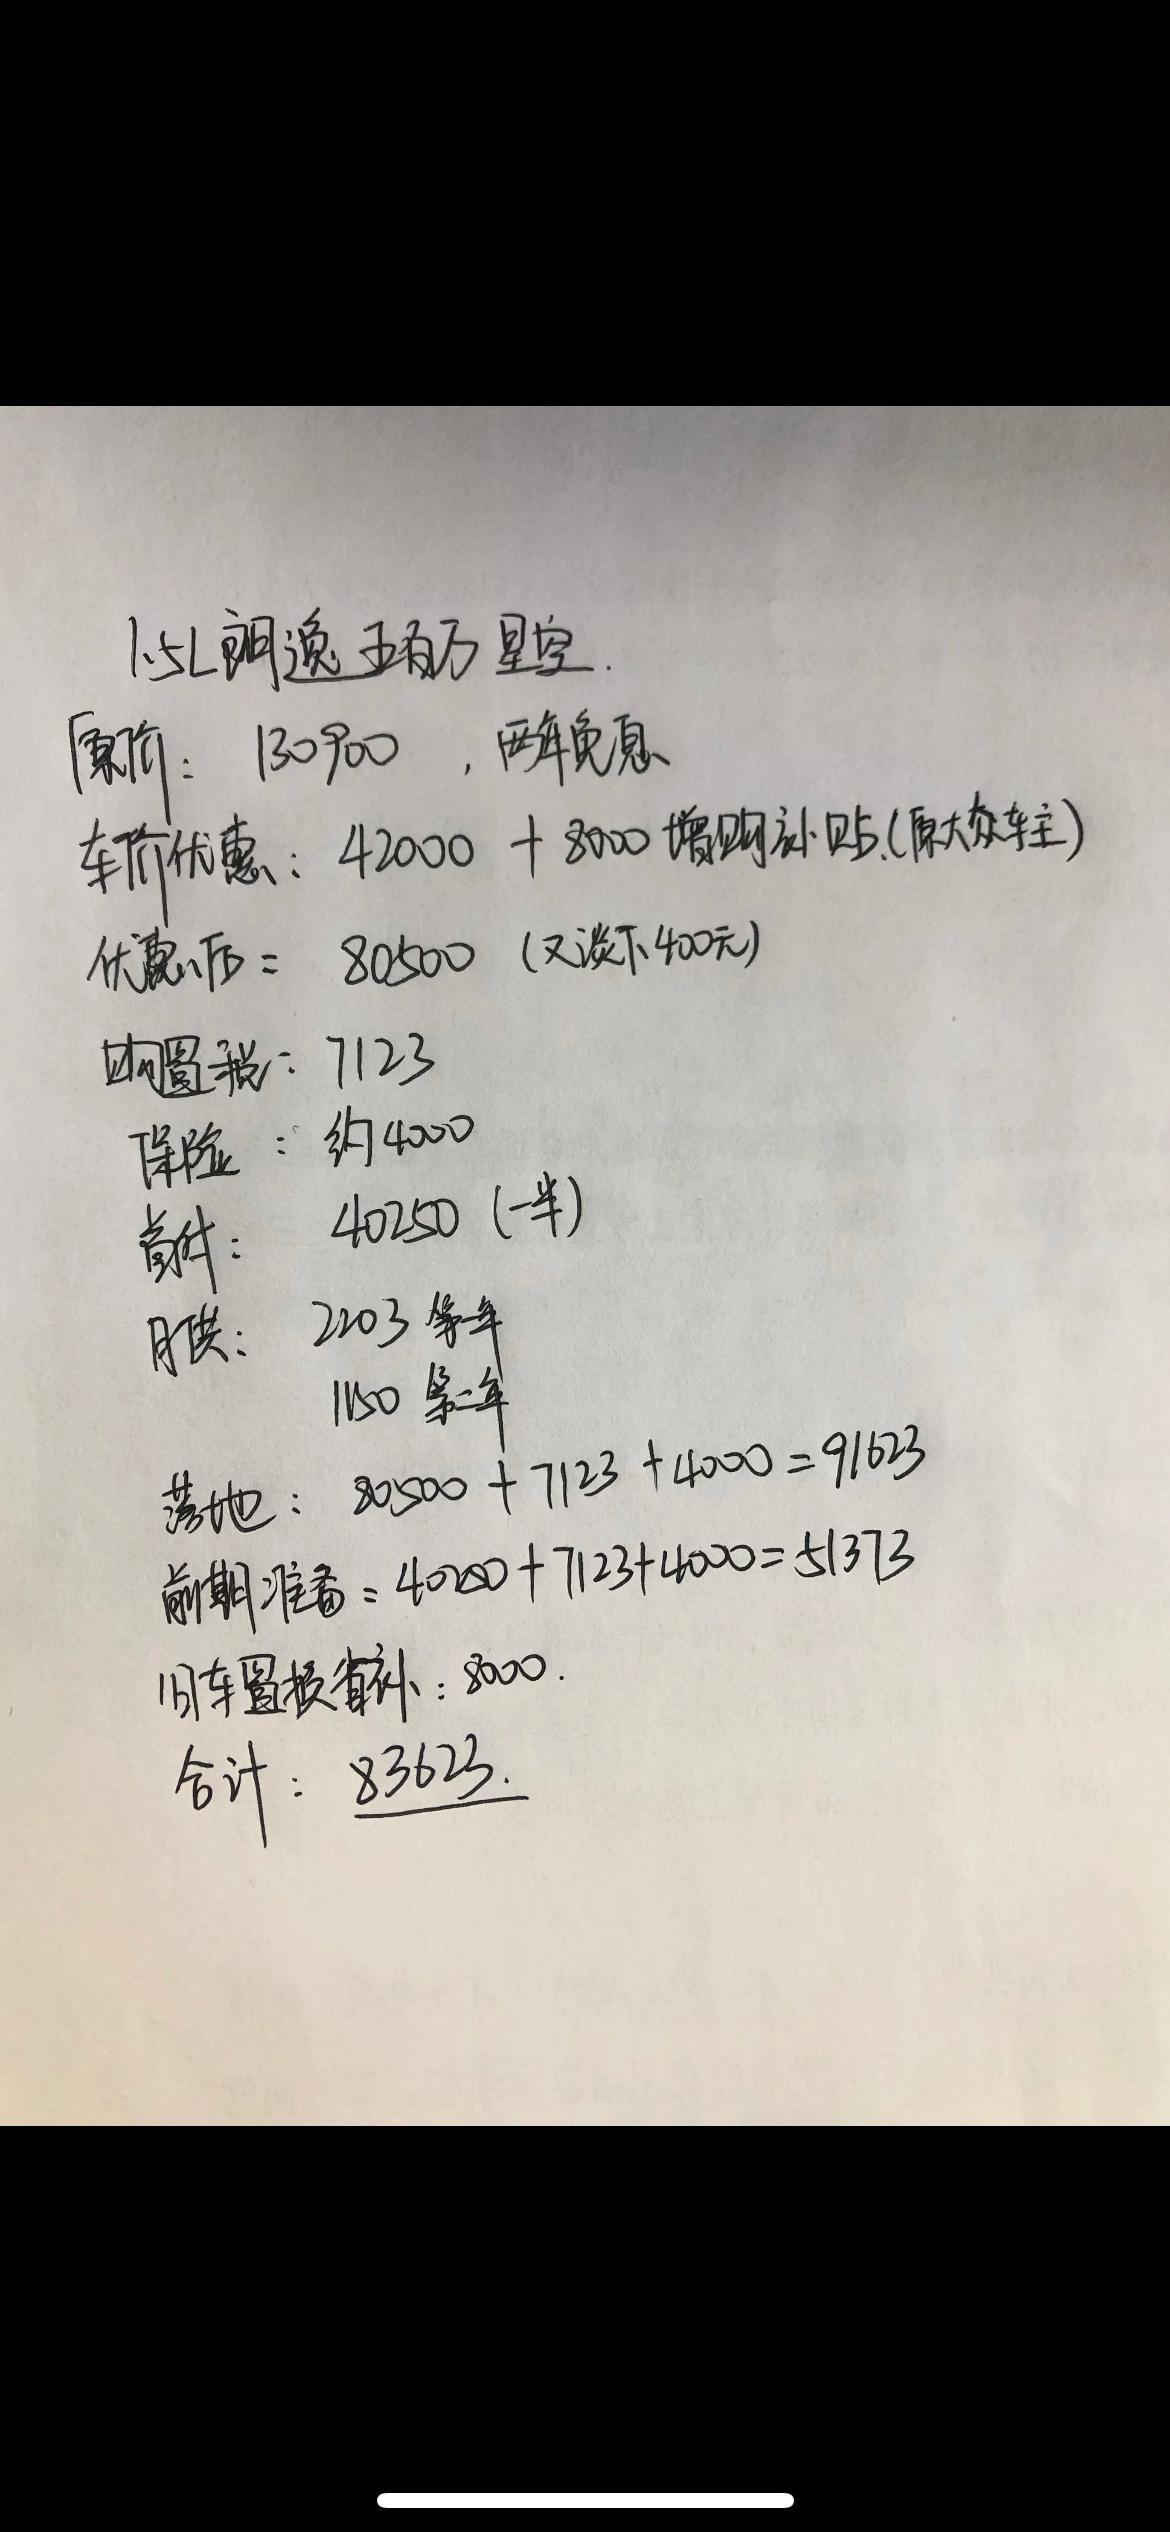 1.5L朗逸五百万星空.
原价：130900，两年免息
车价优惠：42000+8000增购补贴.(原大众车主)
优惠后=80500(又谈下400元)
购置税：7123
保险：约4000
首付：40250(一半)
月供：2203第一年
1150第二年
落地：80500+7123+4000=91623
前期准备=40250+7123+4000=51373
旧车置换省补：8000.
合计：83623.